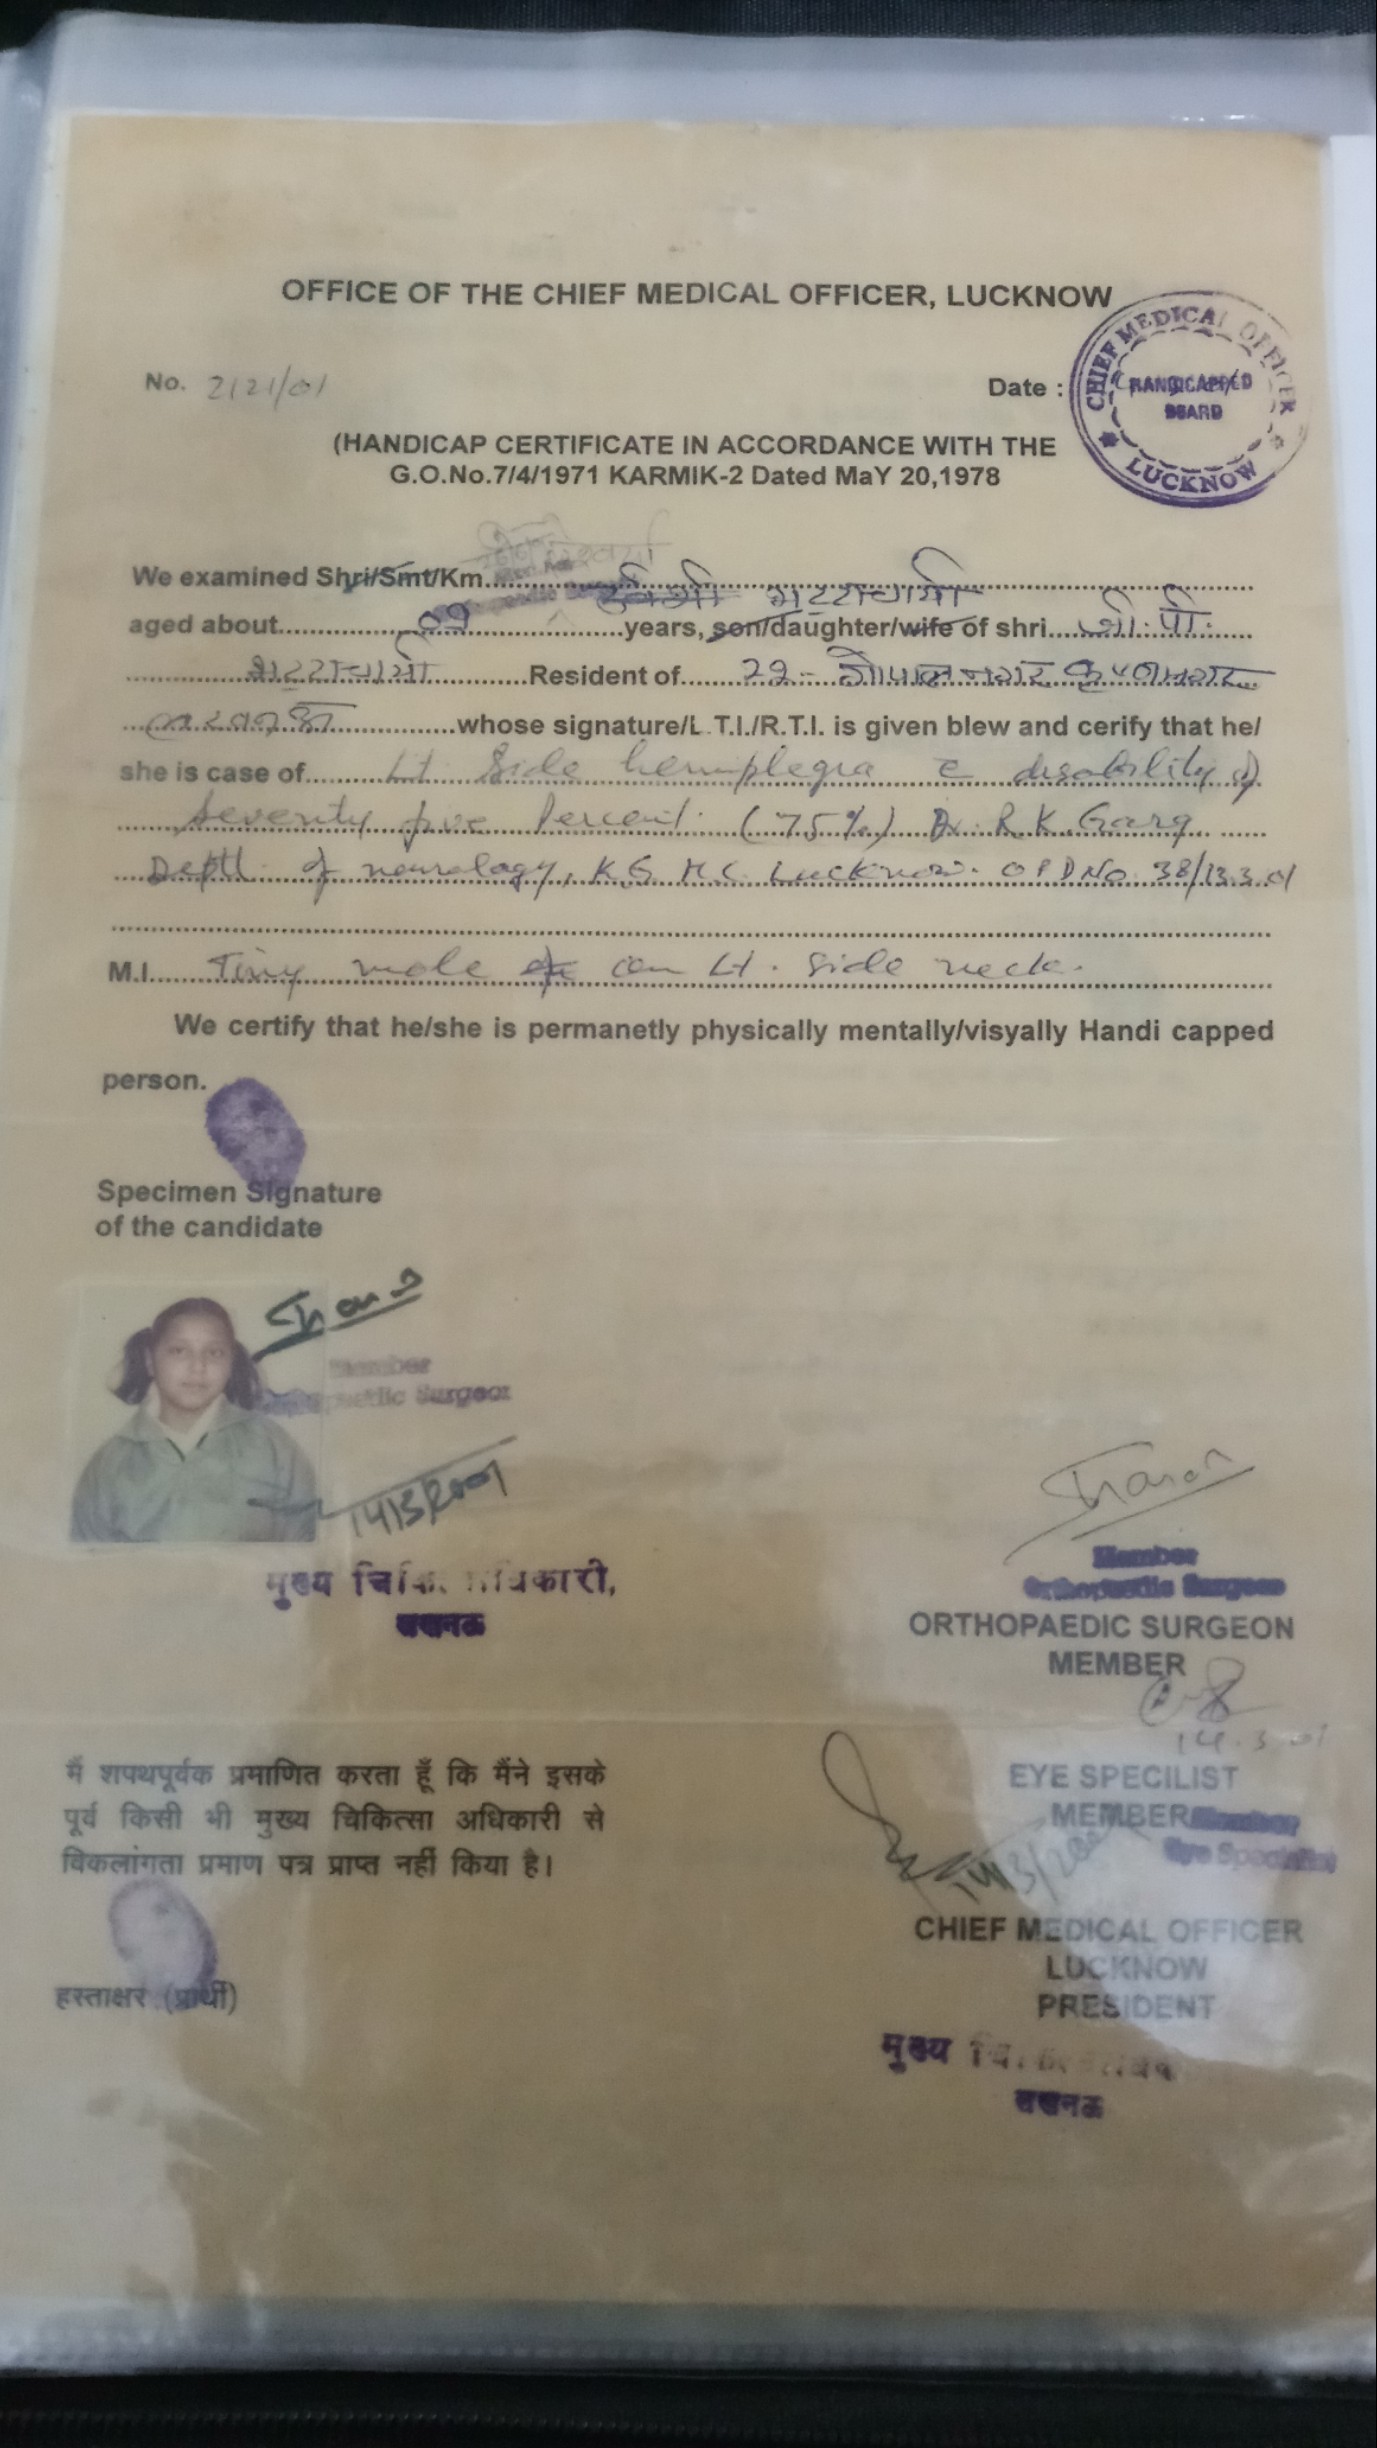 OFFICE OF THE CHIEF MEDICAL OFFICER, LUCKNOW
CHIEF MEDICAL OFFICER
HANDICAPPED
BOARD
LUCKNOW
No. 2121/01 Date :
(HANDICAP CERTIFICATE IN ACCORDANCE WITH THE
G.O.No.7/4/1971 KARMIK-2 Dated MaY 20,1978
We examined Shri/Smt/Km. भट्टाचार्या
aged about 09 years, son/daughter/wife of shri जी. पी.
भट्टाचार्या Resident of 22 - गोपाल नगर कृष्णानगर
लखनऊ whose signature/L.T.I./R.T.I. is given blew and cerify that he/
she is case of Lt Side hemiplegia c disability of
Seventy five Percent. (75%) Dr. R. K. Garg
Deptt of neurology, K.G.M.C. Lucknow. OPD No. 38/13.3.01
M.I. Tiny mole on Lt. side neck.
We certify that he/she is permanetly physically mentally/visyally Handi capped
person.
Specimen Signature
of the candidate
Member
Orthopaedic Surgeon
14/3/2001
मुख्य चिकित्साधिकारी,
लखनऊ
Member
Orthopaedic Surgeon
ORTHOPAEDIC SURGEON
MEMBER
14.3.01
मैं शपथपूर्वक प्रमाणित करता हूँ कि मैंने इसके
पूर्व किसी भी मुख्य चिकित्सा अधिकारी से
विकलांगता प्रमाण पत्र प्राप्त नहीं किया है।
हस्ताक्षर (प्रार्थी)
EYE SPECILIST
MEMBER Member
Eye Specialist
14/3/200
CHIEF MEDICAL OFFICER
LUCKNOW
PRESIDENT
मुख्य
लखनऊ